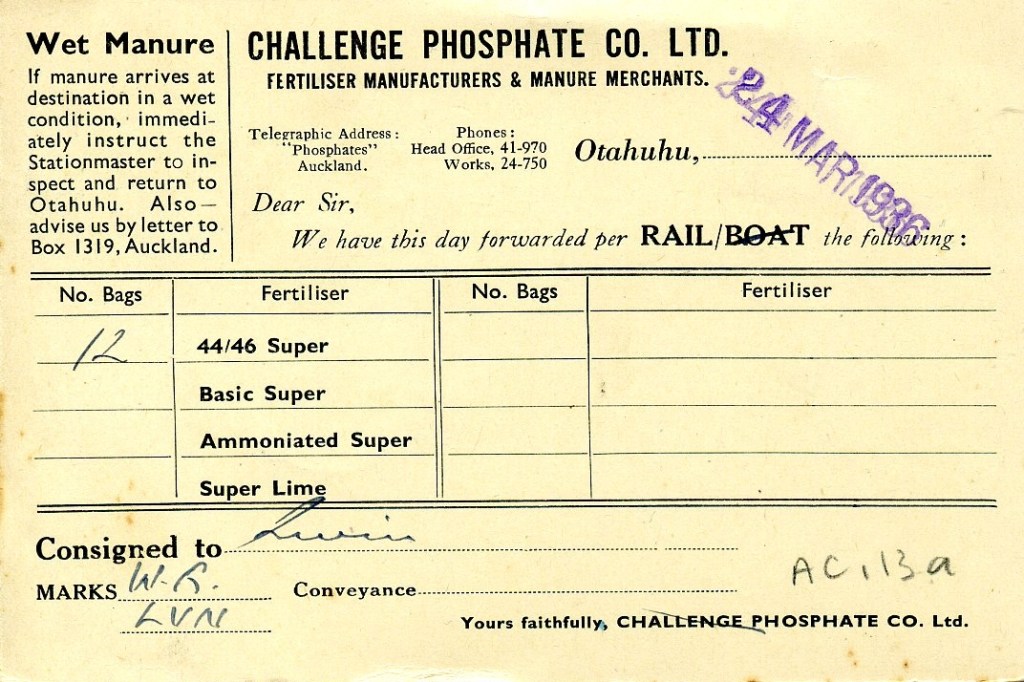 Wet Manure
If manure arrives at
destination in a wet
condition, immedi-
ately instruct the
Stationmaster to in-
spect and return to
Otahuhu. Also—
advise us by letter to
Box 1319, Auckland.
CHALLENGE PHOSPHATE CO. LTD.
FERTILISER MANUFACTURERS & MANURE MERCHANTS.
Telegraphic Address:
"Phosphates"
Auckland.
Phones:
Head Office, 41-970
Works, 24-750
Otahuhu,
24 MAR 1936
Dear Sir,
We have this day forwarded per RAIL/BOAT the following:
No. Bags Fertiliser No. Bags Fertiliser
12 44/46 Super
Basic Super
Ammoniated Super
Super Lime
Consigned to
MARKS W. R. Conveyance
LVN
AC.13a
Yours faithfully, CHALLENGE PHOSPHATE CO. Ltd.